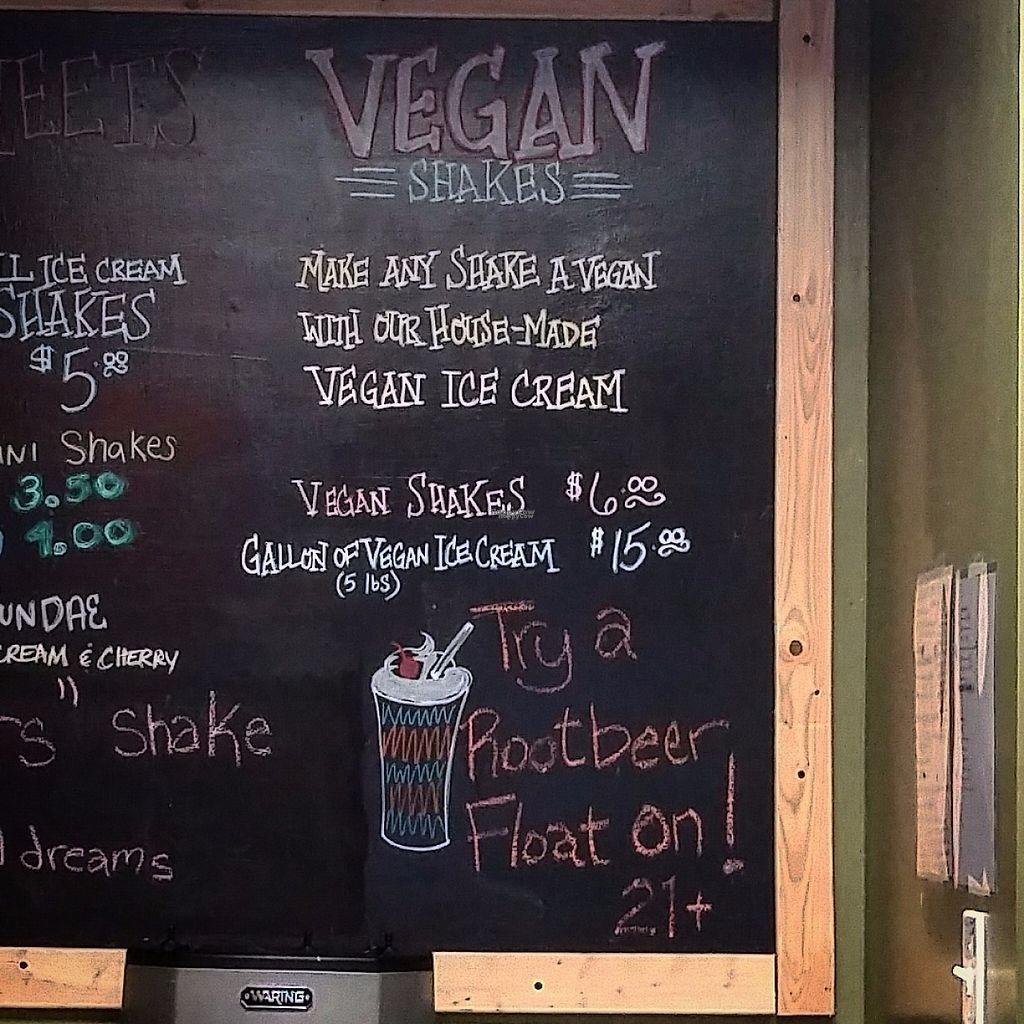 VEGAN
SHAKES
ICE CREAM
SHAKES
$5.00
Shakes
3.50
4.00
CREAM & CHERRY
Shake
dreams
MAKE ANY SHAKE A VEGAN
WITH OUR HOUSE-MADE
VEGAN ICE CREAM
VEGAN SHAKES $6.00
GALLON OF VEGAN ICE CREAM $15.00
(5 lbs)
Try a
Rootbeer
Float on!
21+
WARING